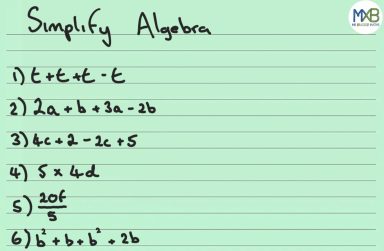 Simplify Algebra
MXB
1) t + t + t - t
2) 2a + b + 3a - 2b
3) 4c + 2 - 2c + 5
4) 5 x 4d
5) 20f/5
6) b² + b + b² + 2b